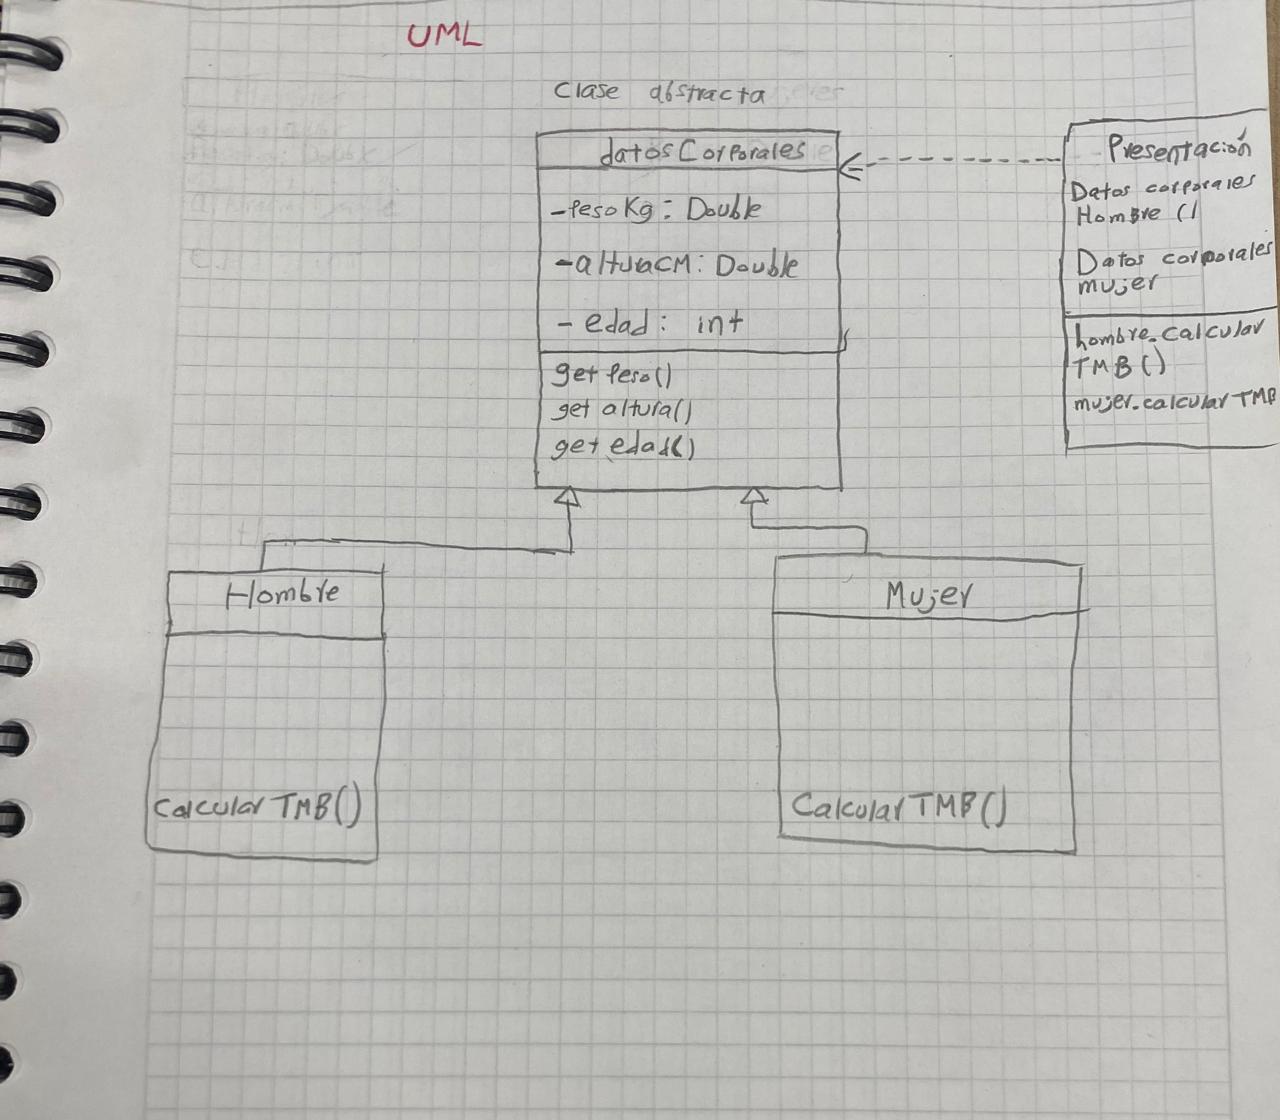 UML
Clase abstracta
datosCorporales
-PesoKg: Double
-alturaCM: Double
- edad: int
get Peso()
get altura()
get edad()
Presentación
Datos corporales
Hombre ()
Datos corporales
mujer
hombre.calcular
TMB()
mujer.calcular TMB
Hombre
Calcular TMB()
Mujer
Calcular TMB()